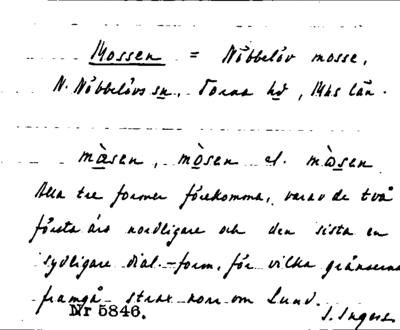 Mossen = Nöbbelöv mosse,
N. Nöbbelövs sn, Torna hd, Mhs län.
màsen, mòsen el. mòsen
Alla tre former förekomma, varav de två
första äro nordligare och den sista en
sydligare dial.-form, för vilka gränserna
framgå strax norr om Lund.
Nr 5846. S. Ingers